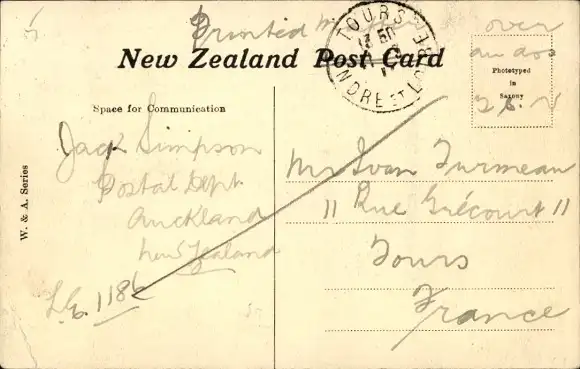 Printed over
New Zealand Post Card
TOURS
INDRE ET LOIRE
Phototyped
in
Saxony
Space for Communication
W. & A. Series
Jack Simpson
Postal Dept.
Auckland
New Zealand
L.G. 1186
Mr Ivan Turmeau
11 Rue Grécourt 11
Tours
France